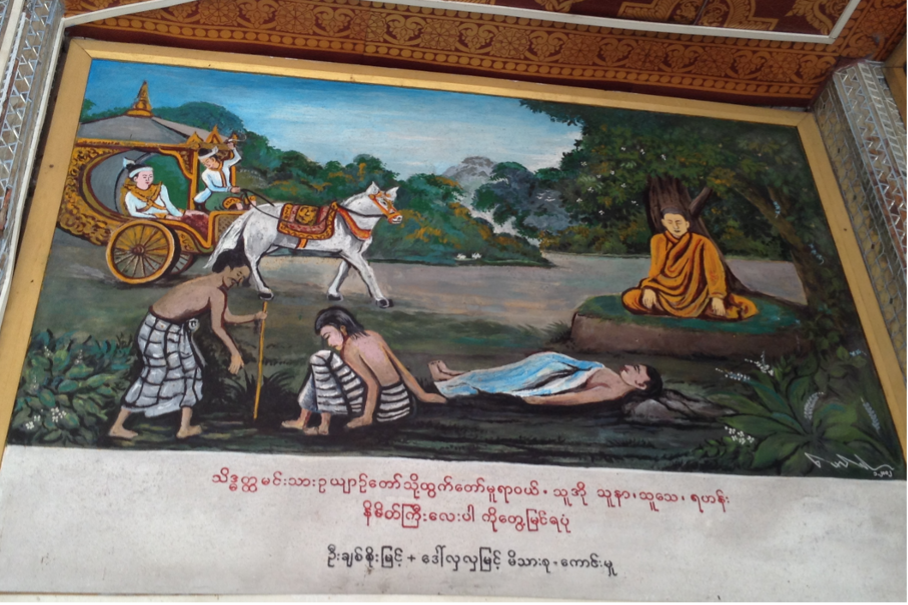 သိဒ္ဓတ္ထမင်းသားဥယျာဉ်တော်သို့ထွက်တော်မူရာဝယ်၊ သူအို သူနာ၊ ထူသေ၊ ရဟန်း
နိမိတ်ကြီးလေးပါ ကိုတွေ့မြင်ရပုံ
ဦးချစ်စိုးမြင့် + ဒေါ်လှလှမြင့် မိသားစု၊ ကောင်းမှု